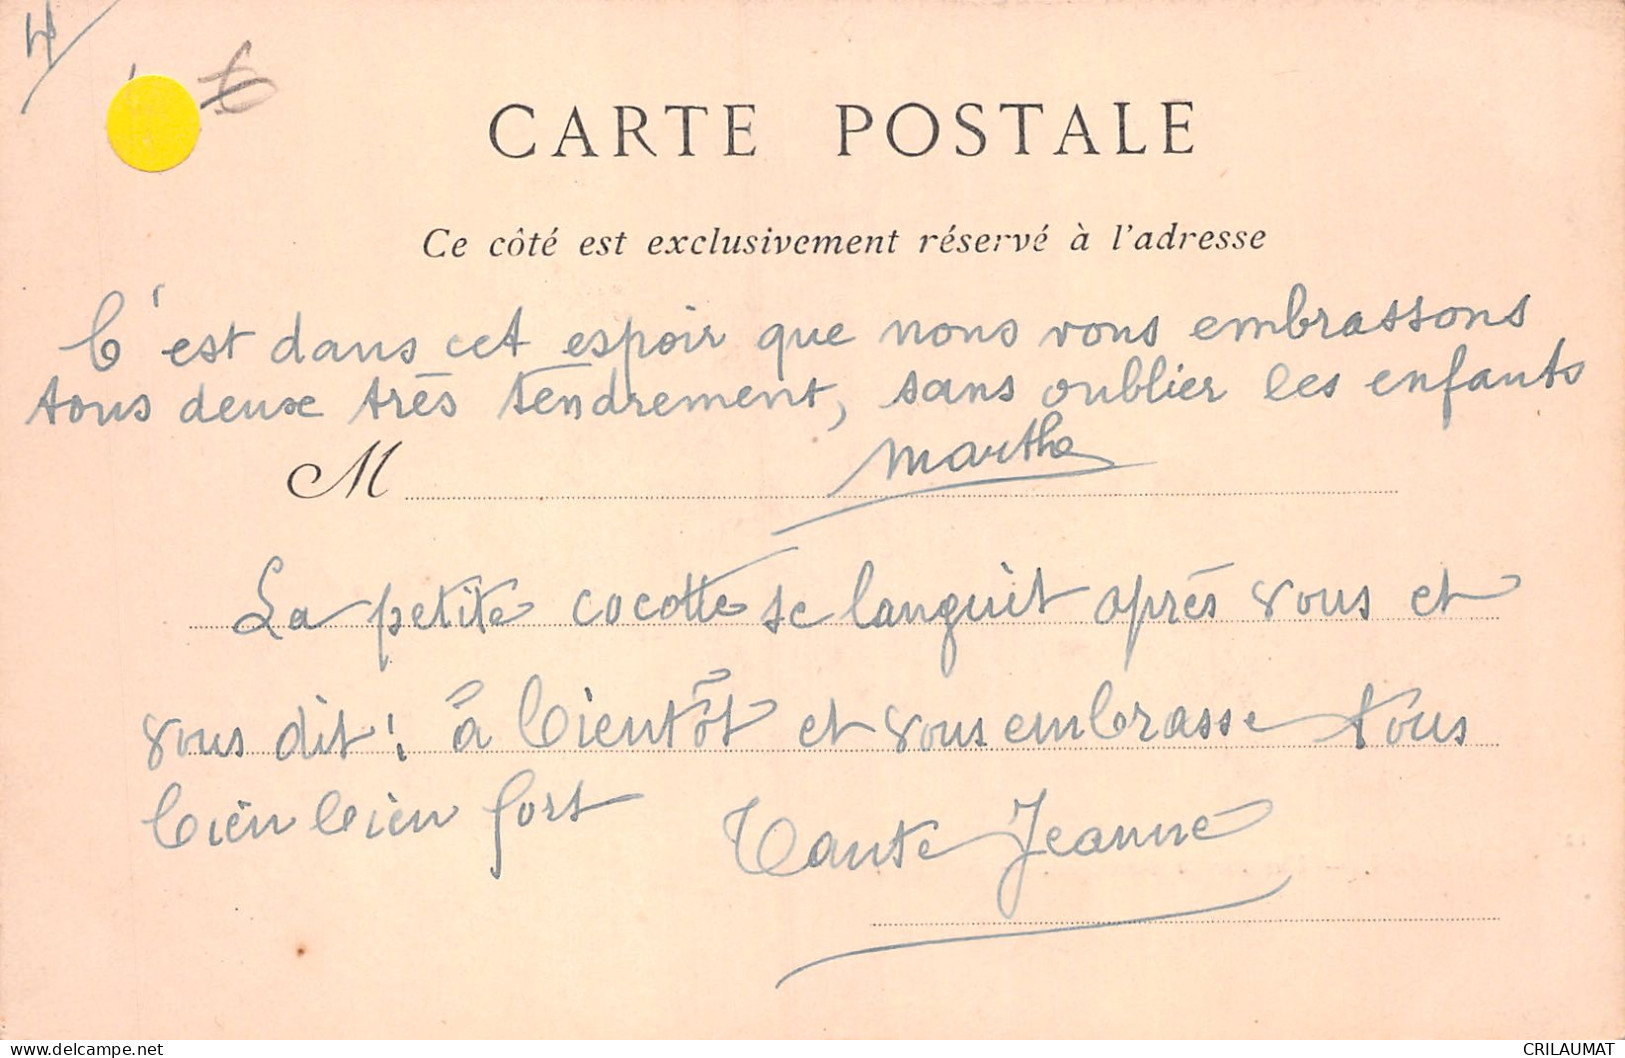 4/
CARTE POSTALE
Ce côté est exclusivement réservé à l'adresse
C'est dans cet espoir que nous vous embrassons
tous deux très tendrement, sans oublier les enfants
Marthe
M
La petite cocotte se languit après vous et
vous dit : à bientôt et vous embrasse tous
bien bien fort
Tante Jeanne
delcampe.net
CRILAUMAT